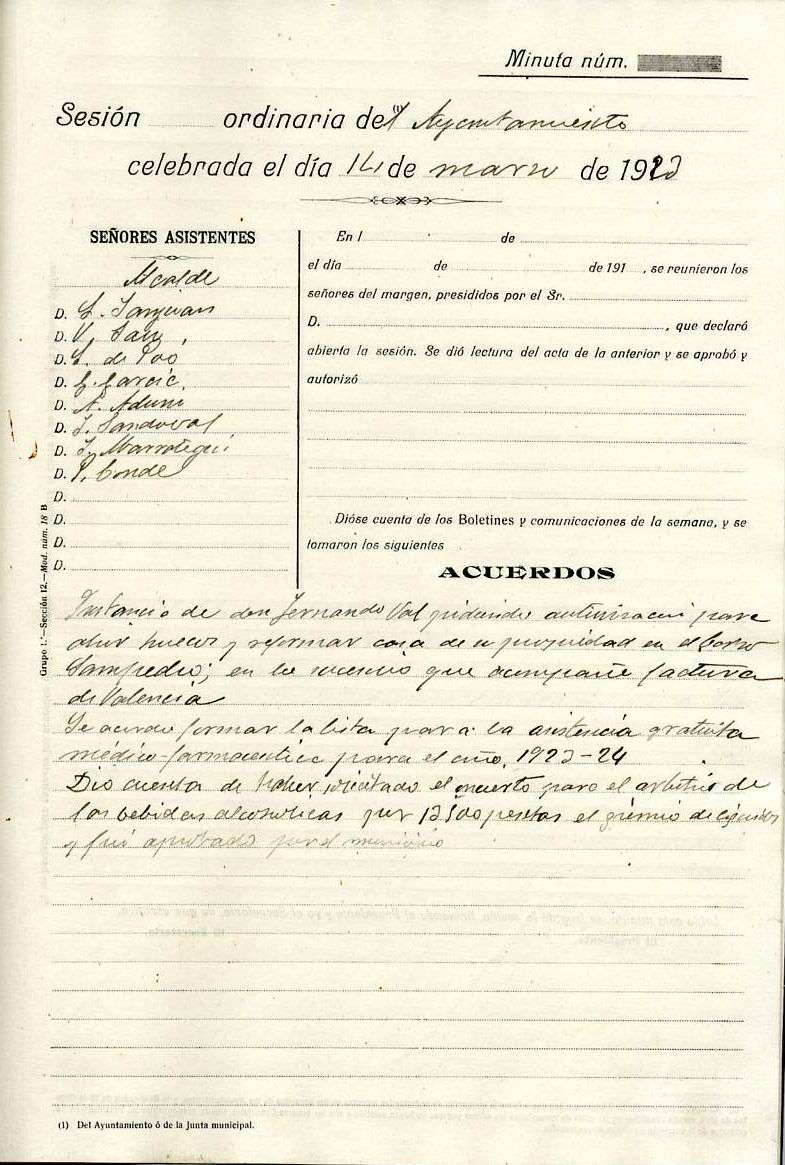 Minuta núm.
Sesión ordinaria del (1) Ayuntamiento
celebrada el día 14 de marzo de 1923
SEÑORES ASISTENTES
Alcalde
D. S. Sanjuan
D. V. Saiz
D. S. de Poo
D. G. Garcia
D. A.
D. J. Sandoval
D. J. Marrotegui
D. P. Conde
D.
D.
D.
D.
En l de
el día de de 191 , se reunieron los
señores del margen, presididos por el Sr.
D. , que declaró
abierta la sesión. Se dió lectura del acta de la anterior y se aprobó y
autorizó
Dióse cuenta de los Boletines y comunicaciones de la semana, y se
tomaron los siguientes
ACUERDOS
Instancia de don Fernando Val pidiendo autorizacion para
abrir huecos y reformar casa de su propiedad en el
Sampedro; en lo sucesivo que acompañe factura
de Valencia
Se acordo formar la lista para la asistencia gratuita
médico-farmaceutica para el año 1923-24
Dio cuenta de haber solicitado el concierto para el arbitrio de
las bebidas alcoholicas por 13500 pesetas el gremio de
y fué aprobado por el municipio
Grupo 1.º—Sección 12.—Mod. núm. 18 B
(1) Del Ayuntamiento ó de la Junta municipal.